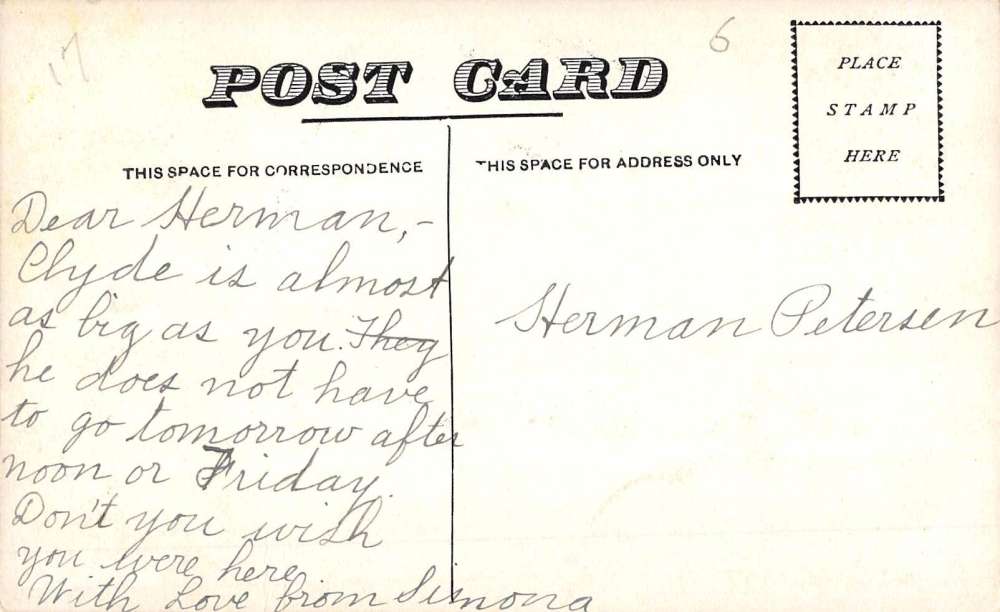 17
6
POST CARD
PLACE
STAMP
HERE
THIS SPACE FOR CORRESPONDENCE
THIS SPACE FOR ADDRESS ONLY
Dear Herman,-
Clyde is almost
as big as you. They
he does not have
to go tomorrow after
noon or Friday.
Don't you wish
you were here
With Love from Simona
Herman Petersen